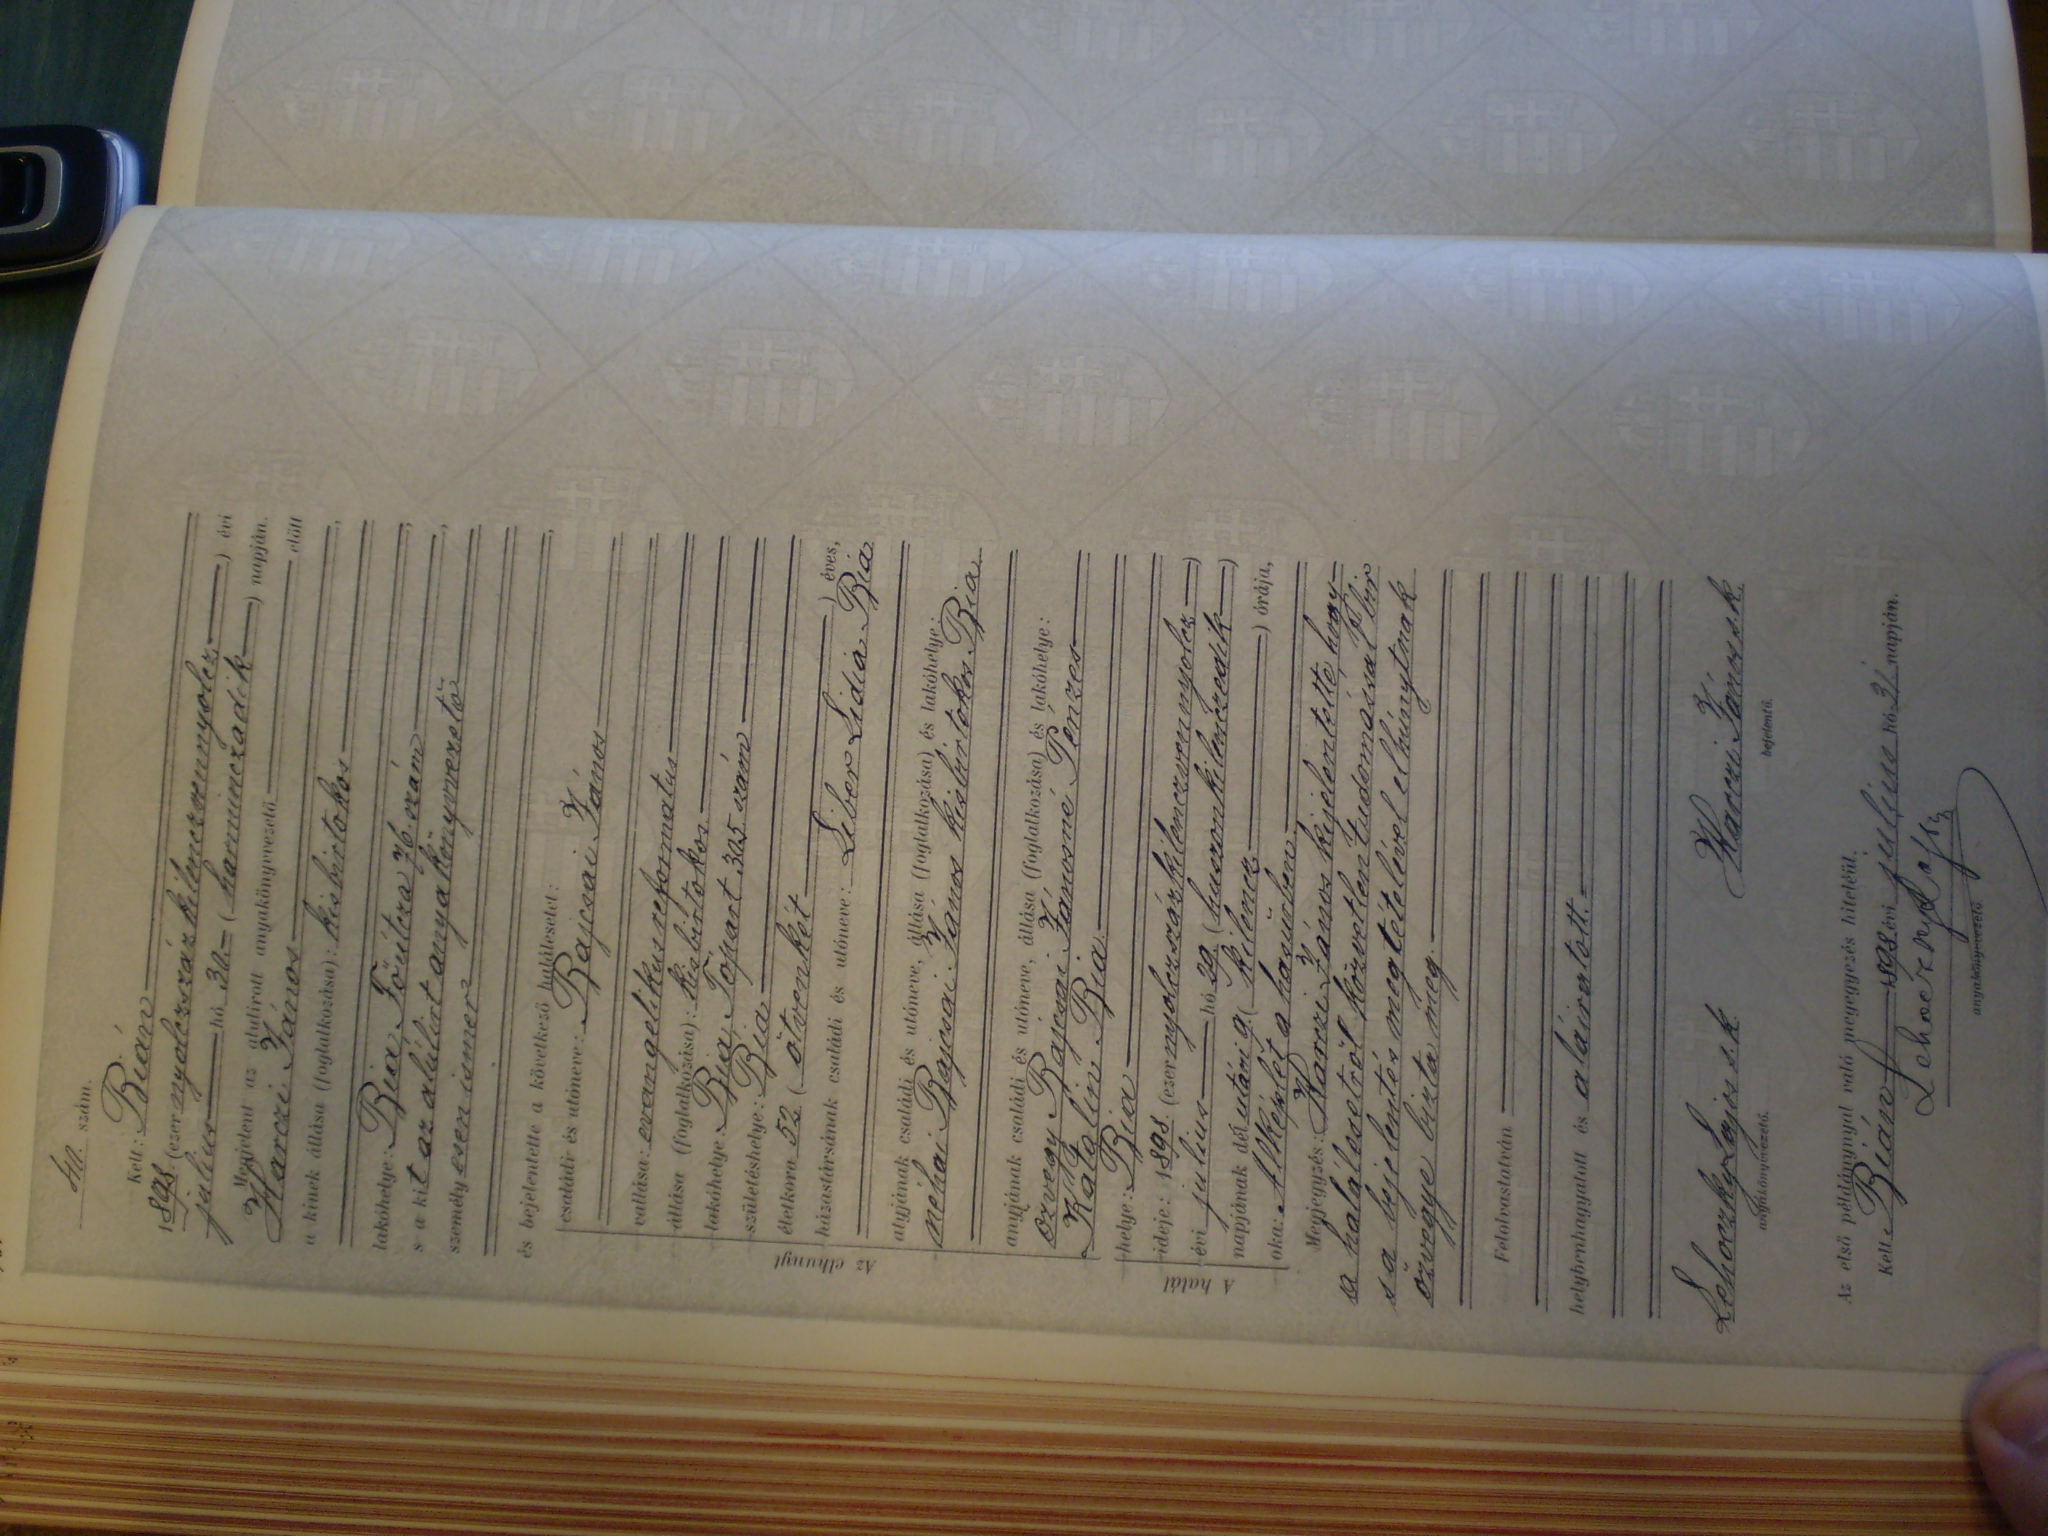 szám.
Kelt: Bián
1898. (ezernyolczszázkilenczvennyolcz) évi
július hó 30 (harminczadik) napján.
Megjelent az alulirott anyakönyvezető előtt
Harczi János
a kinek állása (foglalkozása): kisbirtokos,
lakóhelye: Bia Főútcza 76. szám,
s a kit az alulirt anyakönyvvezető,
személyesen ismer,
és bejelentette a következő halálesetet:
Az elhunyt
családi és utóneve: Bajcsai János
vallása: evangelikus reformatus
állása (foglalkozása): kisbirtokos
lakóhelye: Bia Tópart 305 szám
születéshelye: Bia
életkora 52 (ötvenkét) éves,
házastársának családi és utóneve: Liber Lidia Bia
atyjának családi és utóneve, állása (foglalkozása) és lakóhelye:
néhai Bajcsai János kisbirtokos Bia
anyjának családi és utóneve, állása (foglalkozása) és lakóhelye:
özvegy Bajcsai Jánosné Pénzes
Katalin Bia
A halál
helye: Bia
ideje: 1898. (ezernyolczszázkilenczvennyolcz)
évi július hó 29 (huszonkilenczedik)
napjának dél utáni 9 (kilencz) órája,
oka: Alképlet a hasűrben
Megjegyzés: Harczi János kijelentette hogy
a halálesetről közvetlen tudomással bir
s a bejelentés megtételével elhúnytnak
özvegye bizta meg.
Felolvastatván
helybenhagyatott és aláiratott.
Lehoczky Lajos s. k. Harczi János s. k.
anyakönyvvezető. bejelentő.
Az első példánynyal való megegyezés hiteléül.
Kelt Bián 1898 évi július hó 31 napján.
Lehoczky Lajos
anyakönyvvezető